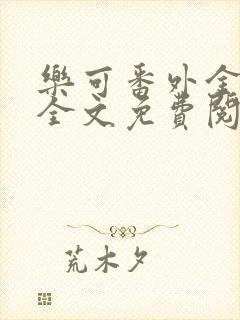 樂可番外全
全文免費閱
荒木夕